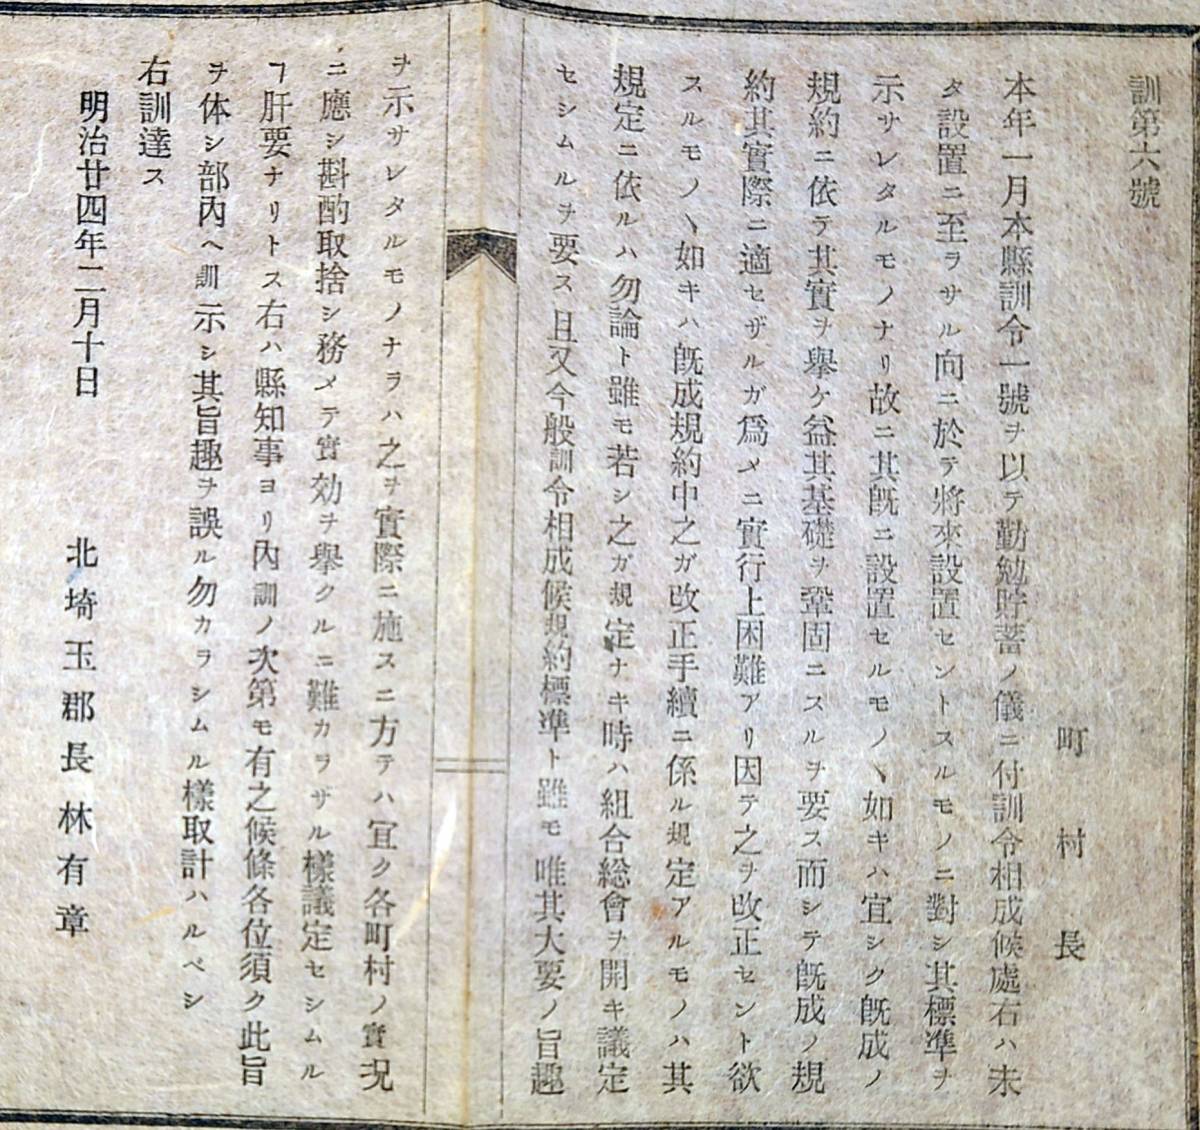 訓第六號
町村長
本年一月本縣訓令一號ヲ以テ勤勉貯蓄ノ儀ニ付訓令相成候處右ハ未
タ設置ニ至ラサル向ニ於テ將來設置セントスルモノニ對シ其標準ヲ
示サレタルモノナリ故ニ其既ニ設置セルモノヽ如キハ宜シク既成ノ
規約ニ依テ其實ヲ擧ケ益其基礎ヲ鞏固ニスルヲ要ス而シテ既成ノ規
約其實際ニ適セザルガ爲メニ實行上困難アリ因テ之ヲ改正セント欲
スルモノヽ如キハ既成規約中之ガ改正手續ニ係ル規定アルモノハ其
規定ニ依ルハ勿論ト雖モ若シ之ガ規定ナキ時ハ組合総會ヲ開キ議定
セシムルヲ要ス且又今般訓令相成候規約標準ト雖モ唯其大要ノ旨趣
ヲ示サレタルモノナラハ之ヲ實際ニ施スニ方テハ宜ク各町村ノ實況
ニ應シ斟酌取捨シ務メテ實効ヲ擧クルニ難カラザル樣議定セシムル
ヿ肝要ナリトス右ハ縣知事ヨリ內訓ノ次第モ有之候條各位須ク此旨
ヲ体シ部內ヘ訓示シ其旨趣ヲ誤ル勿カラシムル樣取計ハルベシ
右訓達ス
明治廿四年二月十日
北埼玉郡長林有章